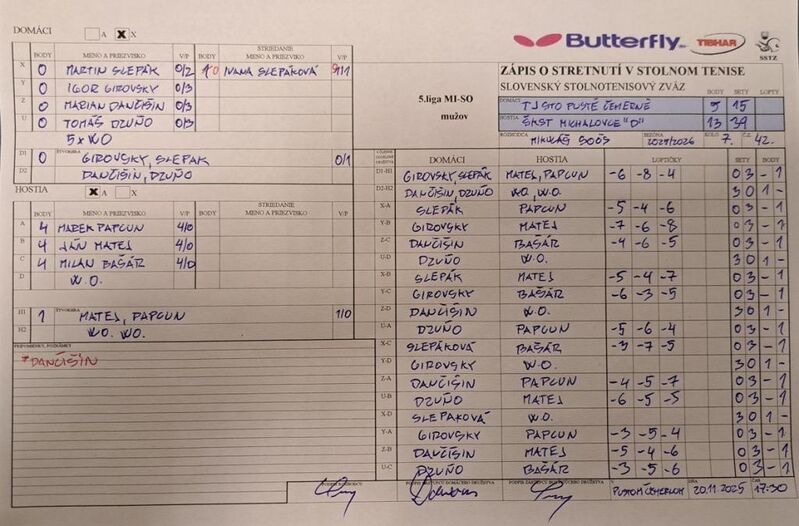 DOMÁCI A X X
Butterfly TIBHAR SSTZ
BODY MENO A PRIEZVISKO V/P BODY STRIEDANIE MENO A PRIEZVISKO V/P
X 0 MARTIN SLEPÁK 0/2 0 IVANA SLEPÁKOVÁ
Y 0 IGOR GIROVSKY 0/3
Z 0 MARIAN DANČIŠIN 0/3
U 0 TOMÁŠ DZUŇO 0/3
5 x WO
D1 0 ŠTVORHRA GIROVSKY, SLEPÁK 0/1
D2 DANČIŠIN, DZUŇO
HOSTIA X A X
BODY MENO A PRIEZVISKO V/P BODY STRIEDANIE MENO A PRIEZVISKO V/P
A 4 MAREK PAPCUN 4/0
B 4 JÁN MATEJ 4/0
C 4 MILAN BAŠÁR 4/0
D W.O.
H1 1 ŠTVORHRA MATEJ, PAPCUN 1/0
H2 W.O. W.O.
PRIPOMIENKY, POZNÁMKY
*DANČIŠIN
5.liga MI-SO
mužov
ZÁPIS O STRETNUTÍ V STOLNOM TENISE
SLOVENSKÝ STOLNOTENISOVÝ ZVÄZ BODY SETY LOPTY
DOMÁCI TJ STO PUSTÉ ČEMERNÉ 5 15
HOSTIA ŠKST MICHALOVCE "D" 13 39
ROZHODCA MIKULÁŠ SOÓS SEZÓNA 2025/2026 KOLO 7. Č.Z. 42.
DOMÁCI HOSTIA LOPTIČKY SETY BODY
D1-H1 GIROVSKY, SLEPÁK MATEJ, PAPCUN -6 -8 -4 0 3 - 1
D2-H2 DANČIŠIN, DZUŇO W.O, W.O. 3 0 1 -
X-A SLEPÁK PAPCUN -5 -4 -6 0 3 - 1
Y-B GIROVSKY MATEJ -7 -6 -8 0 3 - 1
Z-C DANČIŠIN BAŠÁR -4 -6 -5 0 3 - 1
U-D DZUŇO W.O. 3 0 1 -
X-B SLEPÁK MATEJ -5 -4 -7 0 3 - 1
Y-C GIROVSKY BAŠÁR -6 -3 -5 0 3 - 1
Z-D DANČIŠIN W.O. 3 0 1 -
U-A DZUŇO PAPCUN -5 -6 -4 0 3 - 1
X-C SLEPÁKOVÁ BAŠÁR -3 -7 -5 0 3 - 1
Y-D GIROVSKY W.O. 3 0 1 -
Z-A DANČIŠIN PAPCUN -4 -5 -7 0 3 - 1
U-B DZUŇO MATEJ -6 -5 -5 0 3 - 1
X-D SLEPÁKOVÁ W.O. 3 0 1 -
Y-A GIROVSKY PAPCUN -3 -5 -4 0 3 - 1
Z-B DANČIŠIN MATEJ -5 -4 -6 0 3 - 1
U-C DZUŇO BAŠÁR -3 -5 -6 0 3 - 1
PODPIS ROZHODCU PODPIS VEDÚCEHO DOMÁCEHO DRUŽSTVA V PUSTOM ČEMERNOM DŇA 20.11.2025 ČAS 17:30